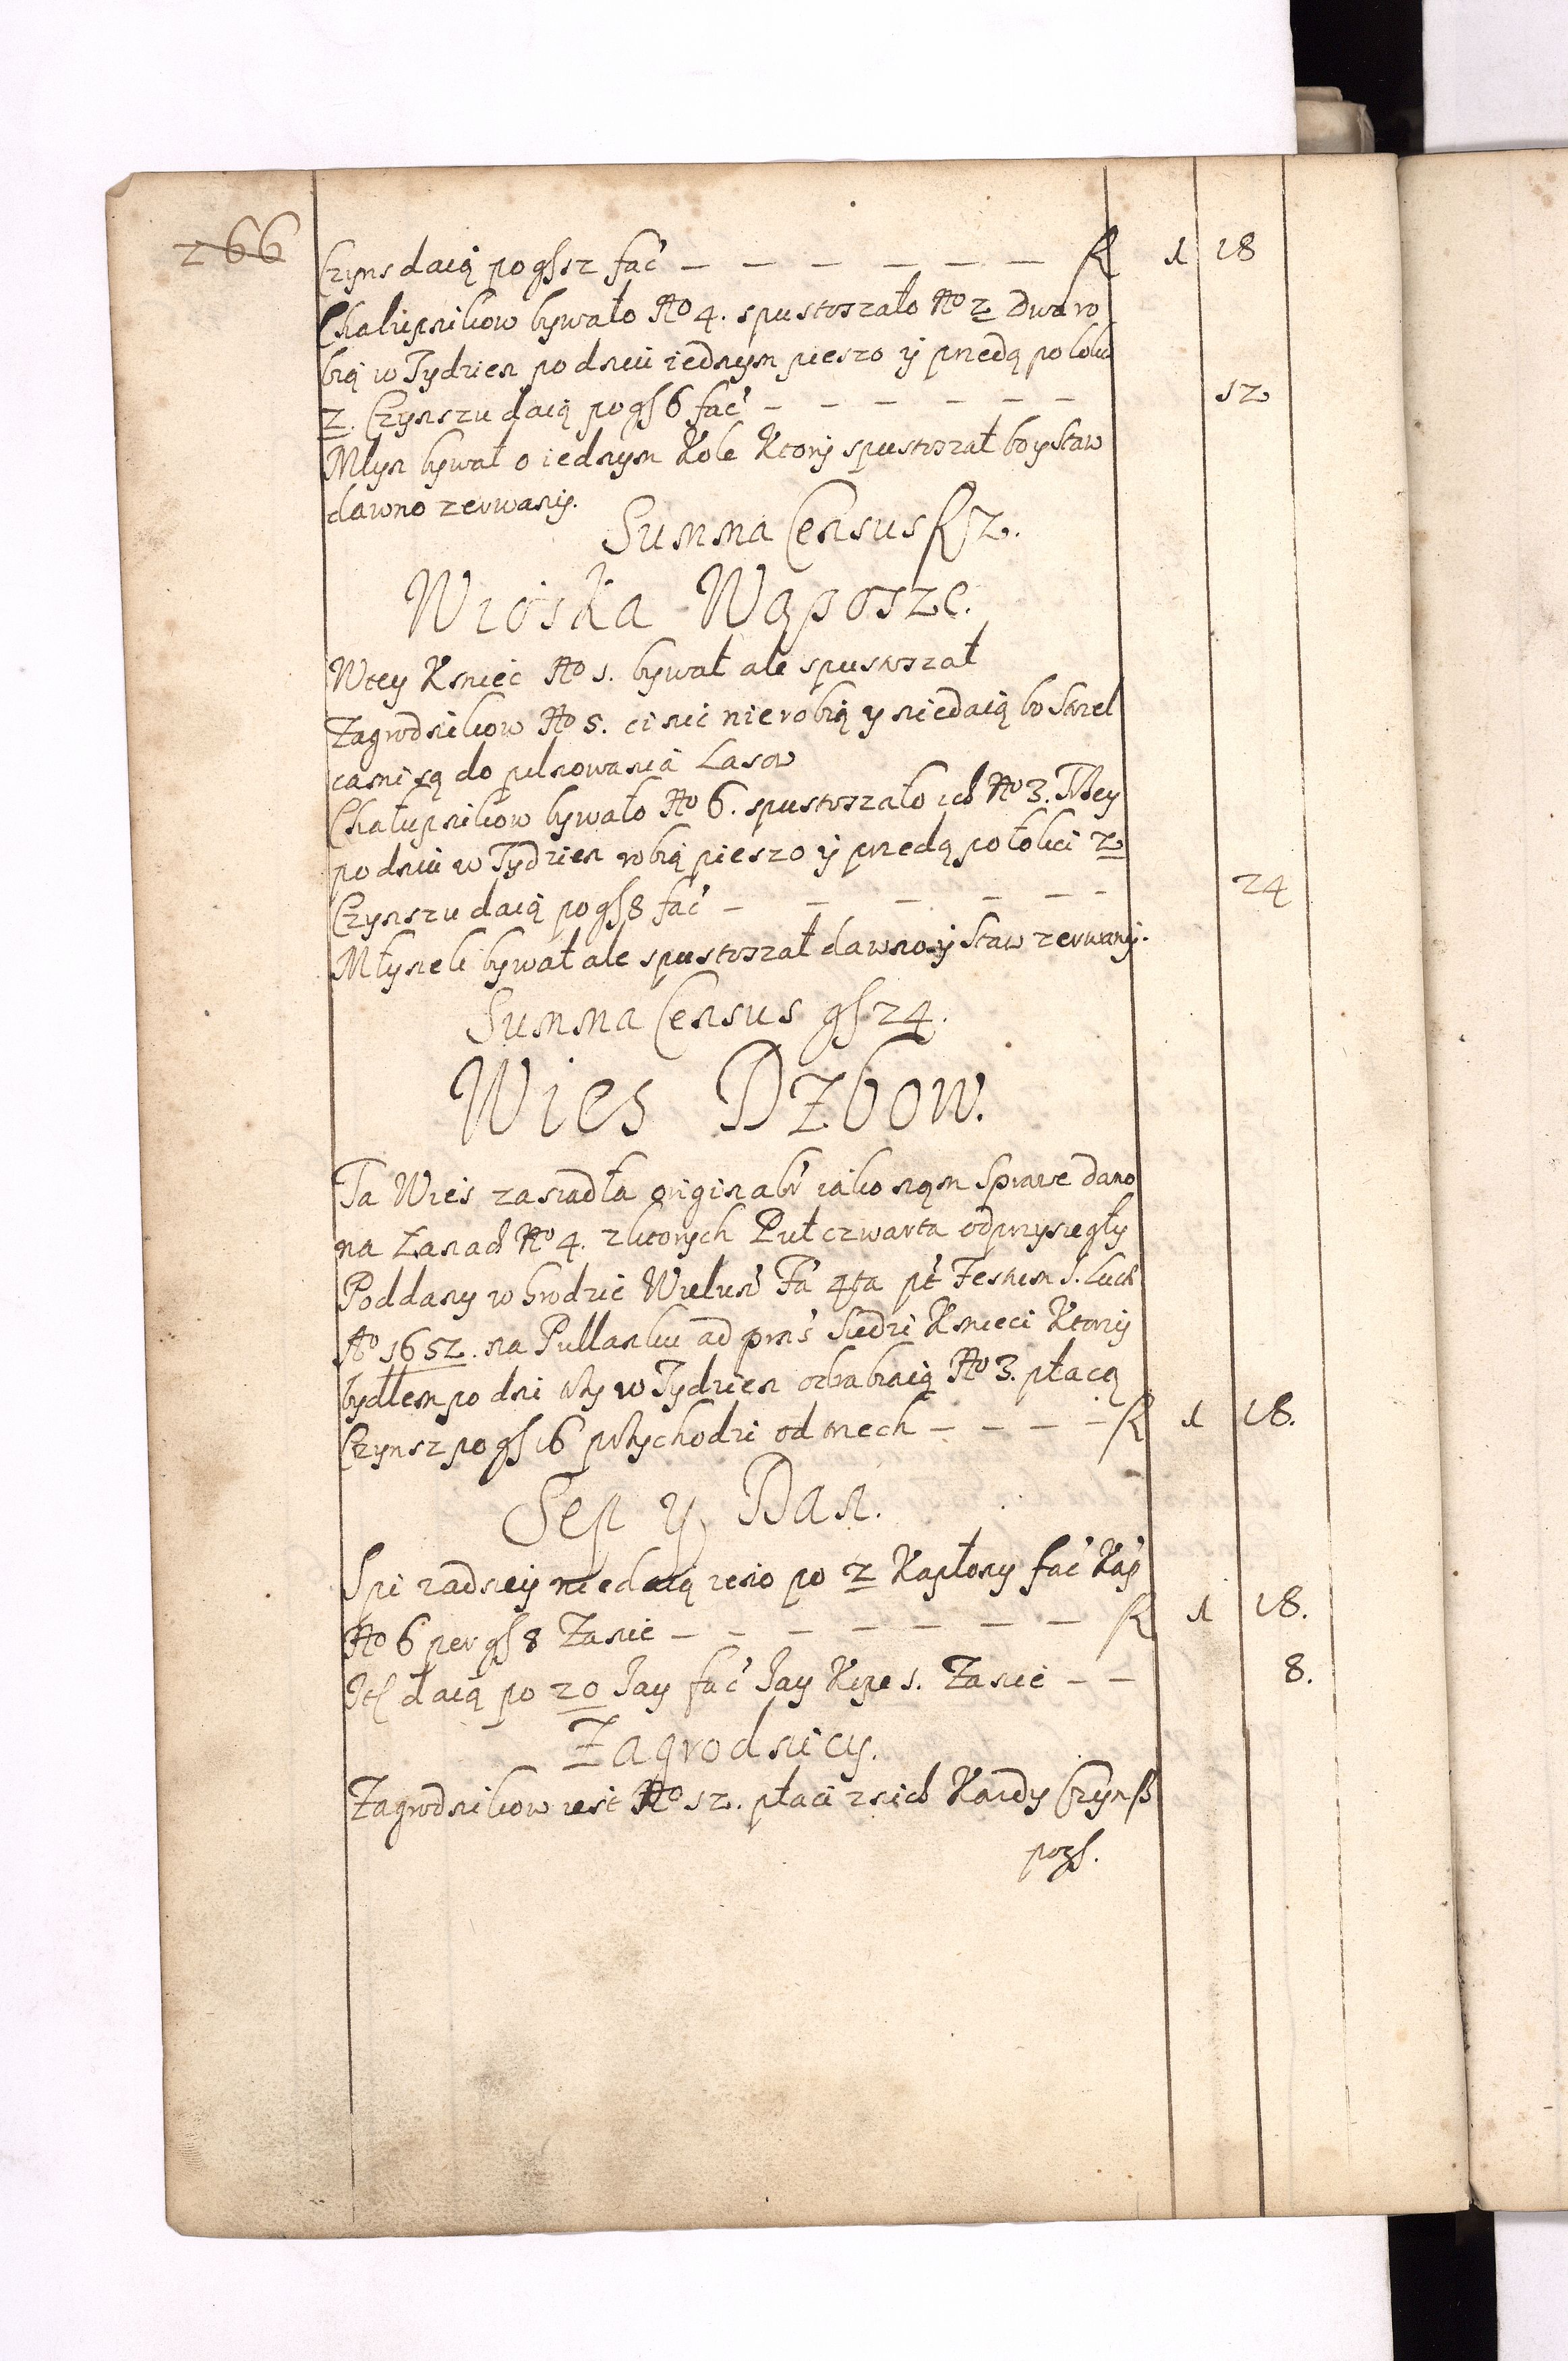 266
Czyns daią po gs 12 fac̃ — — — — — — — R 1 18
Chałupnikow bywało No 4. spustoszało No 2 Dwa ro
bią w Tydzien po dniu iednym pieszo ÿ przedą po łokci
2. Czynszu daią po gs 6 fac̃ — — — — — — 12
Młyn bywał o iednym Kole Ktorÿ spustoszał bo y Staw
dawno zerwanÿ.
Summa Census R 2.
Wioska Wąposze.
W tey Kmiec No 1. bywał ale spustoszał
Zagrodnikow No 5. ci nic nierobią y niedaią bo Strzel
cami są do pilnowania Lasow
Chałupnikow bywało No 6. spustoszało ich No 3. Trzey
po dniu w Tydzien robią pieszo ÿ przedą po łokci 2
Czynszu daią po gs 8 fac̃ — — — — — — 24
Młynek bywał ale spustoszał dawno ÿ Staw zerwanÿ.
Summa Census gs 24.
Wies Dzbow.
Ta Wies zasiadła originalr̃ iako nąm Sprawe dano
na Łanach No 4. z ktorych Puł czwarta odprzysiegły
Poddany w Grodzie Wielun̄ Fã 4ta pt̃ Festum S. Lucæ
Ao 1652. na Pullanku ad prns̃ Siedzi Kmieci Ktorzÿ
bydłem po dni trzy w Tydzien odrabiaią No 3. płacą
Czynsz po gs 16 przychodzi od trzech — — — — R 1 18.
Sep y Dan.
Spi zadney niedaią ieno po 2 Kapłony fac̃ Kap̃
No 6 per gs 8 Zanie — — — — — — — R 1 18.
Itẽ daią po 20 Jay fac̃ Jay Kope 1. Zanie — — 8.
Zagrodnicy.
Zagrodnikow iest No 12. płaci z nich Kazdy Czynsz
po gs.